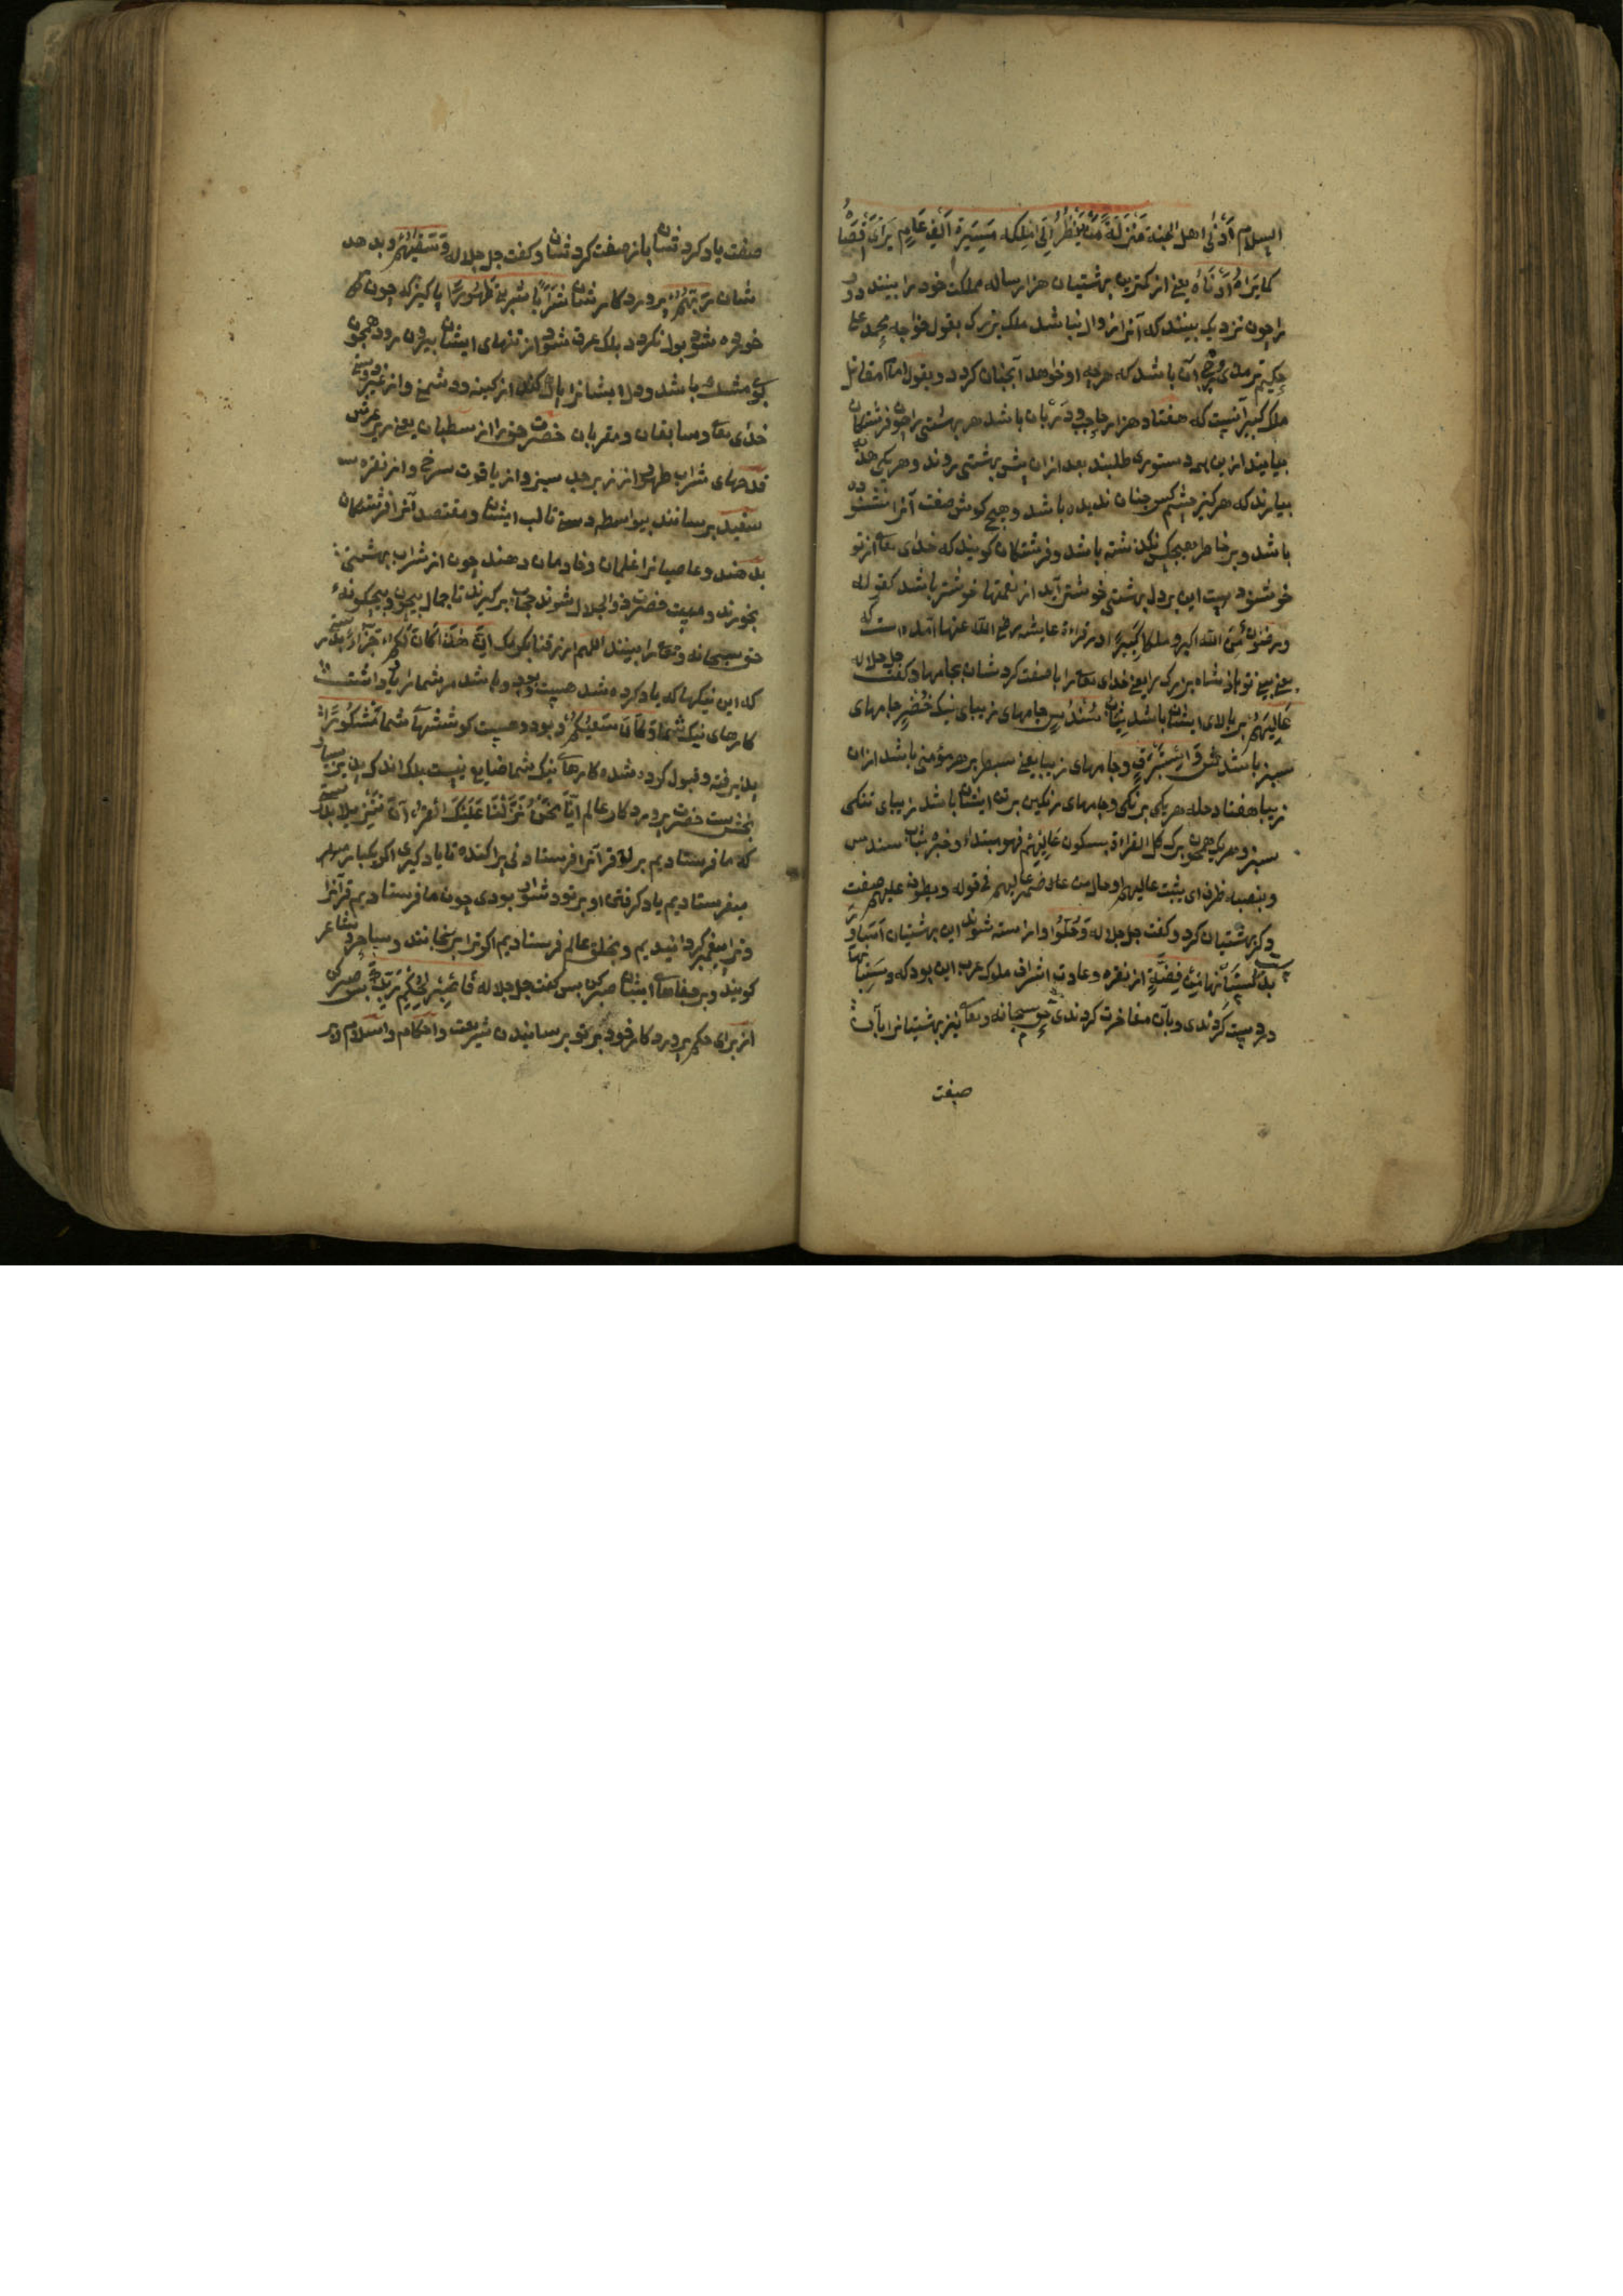 السلام اَدْنٰی اهل الجنة مَنْزِلَةً مَنْ يَنْظُرُ اِلٰی مُلْكِه مَسِيْرَةَ اَلْفِ عَامٍ يَرٰی اَقْصَاهُ
كما يَرٰی اَدْنَاهُ یعنی از کمترین بهشتیان هزار ساله مملکت خود را بینند دور
را چون نزدیک بینند که آنرا زوال نباشد ملک بزرک بقول خواجه محمد علی
حکیم ترمذی آن باشد که هرچه او خواهد آنچنان کردد و بقول امام مقاتل
ملک کبیر آنست که هفتاد هزار حاجب و دربان باشد هر بهشتی را چون فرشتکان
بیایند ازین همه دستوری طلبند بعد ازان پیش بهشتی روند و هر یکی هدیه
بیارند که هرکز چشم کس چنان ندیده باشد و هیچ کوش صفت آنرا نشنوده
باشد و بر خاطر هیچکس نکذشته باشد و فرشتکان کویند که خدای تعالی از تو
خوشنود است این بر دل بهشتی خوشتر آید از نعمتها خوشتر باشد کقوله
ورضوان من الله اکبر و ملکا کبیرًا در قراءة عایشه رضی الله عنها آمده است که
یعنی ببینی تو پادشاه بزرک را یعنی خدای تعالی را باز صفت کردشان بجامها و کفت جل جلاله
عَالِيَهُمْ بر بالای ایشان باشد ثِيَابُ سُنْدُسٍ جامهای زیبای نیک خُضْرٌ جامهای
سبز باشد وَاِسْتَبْرَقٌ و جامهای زیبا یعنی سطبر بر هر مؤمنی باشد ازان
زیبا هفتاد حله هر یکی برنکی و جامهای رنکین بر تن ایشان باشد زیبای تنکی
سبز و هر یک همچون برک کل القراءة بسکون عَالِيْهِمْ فهو مبتداء و خبره ثیاب سندس
و بنصبه ظرف ای یثبت عالیهم او حال من ضمیر علیهم فی قوله ویطوف علیهم صفت
دیکر بهشتیان کرد و کفت جل جلاله وَحُلُّوْا و اراسته شوند این بهشتیان اَسَاوِرَ
بدستیانها مِنْ فِضَّةٍ از نقره و عادت اشراف ملوک عرب این بود که دستیانها
در دست کردندی و بآن مفاخرت کردندی حق سبحانه وتعالی نیز بهشتیانرا بآن
صفت
صفت یاد کرد تشان باز صفت کرد تشان و کفت جل جلاله وَسَقٰيهُمْ و بدهد
شان رَبُّهُمْ پروردکار شان شَرَابًا شربتی طَهُوْرًا پاکیزه که چون
خورده شود بول نکردد بلک عرق شود از تنهای ایشان بیرون رود همچون
بوی مشک باشد و دل ایشانرا پاک کند از کینه و دشمنی و از غیر دوستی
خدای تعالی و سابقان و مقربان حضرت خود را از سطبان یعنی زیر عرش
قدحهای شراب طهور از زبرجد سبز و از یاقوت سرخ و از نقره
سفید برسانند بیواسطه دست تا لب ایشان و مقتصد آنرا فرشتکان
بدهند و عاصیانرا غلمان و خادمان دهند چون از شراب بهشتی
بخورند و مست حضرت ذو الجلال شوند حجاب برکیرند تا جمال بیچون و بیچکونه
حق سبحانه وتعالی را بینند اللهم ارزقنا بکرمک اِنَّ هٰذَا كَانَ لَكُمْ جَزَاءً بدرستی
که این نیکیها که یاد کرده شد هست بود و باشد مر شمارا پاداشت
کارهای نیک شما وَكَانَ سَعْيُكُمْ و بود و هست کوششهاء شما مَشْكُوْرًا
پذیرفته و قبول کرده شده کارهای نیک شما ضایع نیست بلک اندک پذیر بسیار
بخش است حضرت پروردکار عالم اِنَّا نَحْنُ نَزَّلْنَا عَلَيْكَ الْقُرْاٰنَ تَنْزِيْلًا بدرستی
که ما فرستادیم بر تو قرآنرا فرستادنی پراکنده تا یاد کیری اکر یکبار
میفرستادیم یاد کرفتن او بر تو دشوار بودی چون ما فرستادیم قرآنرا
و ترا پیغمبر کردانیدیم و بخلق عالم فرستادیم اکر ترا برنجانند و ساحر و شاعر
کویند و بر جفاهای ایشان صبر کن پس کفت جل جلاله فَاصْبِرْ لِحُكْمِ رَبِّكَ پس صبر کن
از برای حکم پروردکار خود بر تو برسانیدن شریعت و احکام و اسلام